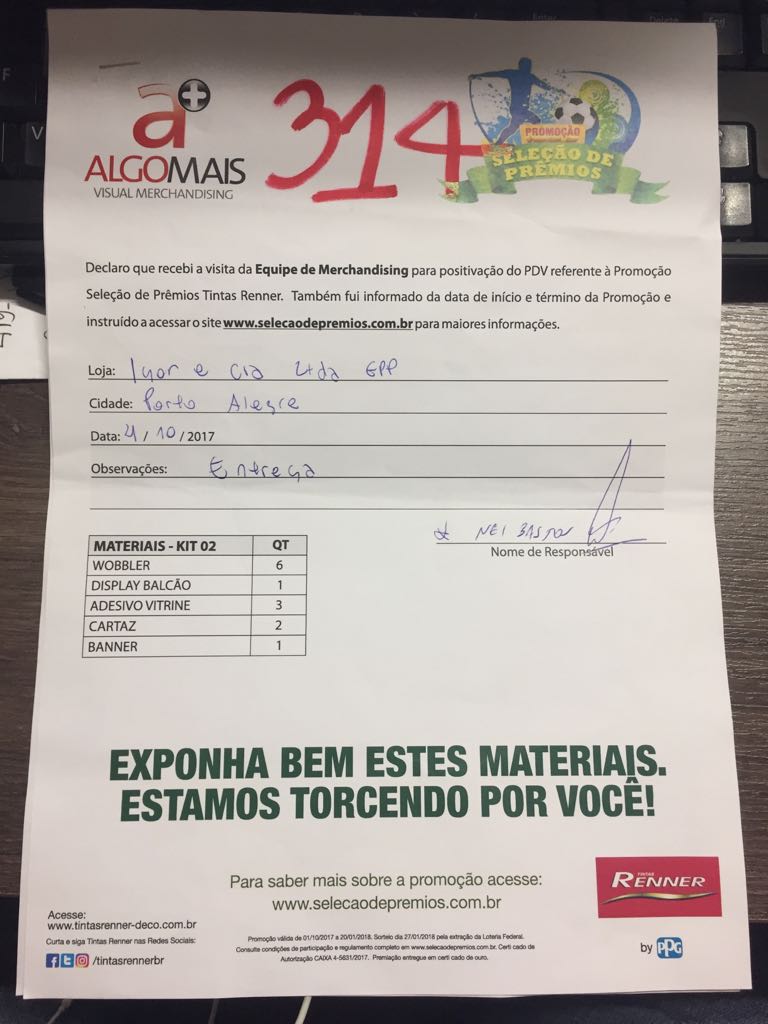 a+
ALGOMAIS
VISUAL MERCHANDISING
314
PROMOÇÃO
SELEÇÃO DE
PRÊMIOS
Declaro que recebi a visita da Equipe de Merchandising para positivação do PDV referente à Promoção
Seleção de Prêmios Tintas Renner. Também fui informado da data de início e término da Promoção e
instruído a acessar o site www.selecaodepremios.com.br para maiores informações.
Loja: Igor e Cia Ltda EPP
Cidade: Porto Alegre
Data: 4 / 10 / 2017
Observações: Entrega
NEI BASTOS
Nome de Responsável
MATERIAIS - KIT 02 QT
WOBBLER 6
DISPLAY BALCÃO 1
ADESIVO VITRINE 3
CARTAZ 2
BANNER 1
EXPONHA BEM ESTES MATERIAIS.
ESTAMOS TORCENDO POR VOCÊ!
Para saber mais sobre a promoção acesse:
www.selecaodepremios.com.br
TINTAS
RENNER
Acesse:
www.tintasrenner-deco.com.br
Curta e siga Tintas Renner nas Redes Sociais:
/tintasrennerbr
Promoção válida de 01/10/2017 a 20/01/2018. Sorteio dia 27/01/2018 pela extração da Loteria Federal.
Consulte condições de participação e regulamento completo em www.selecaodepremios.com.br. Certi cado de
Autorização CAIXA 4-5631/2017. Premiação entregue em certi cado de ouro.
by PPG